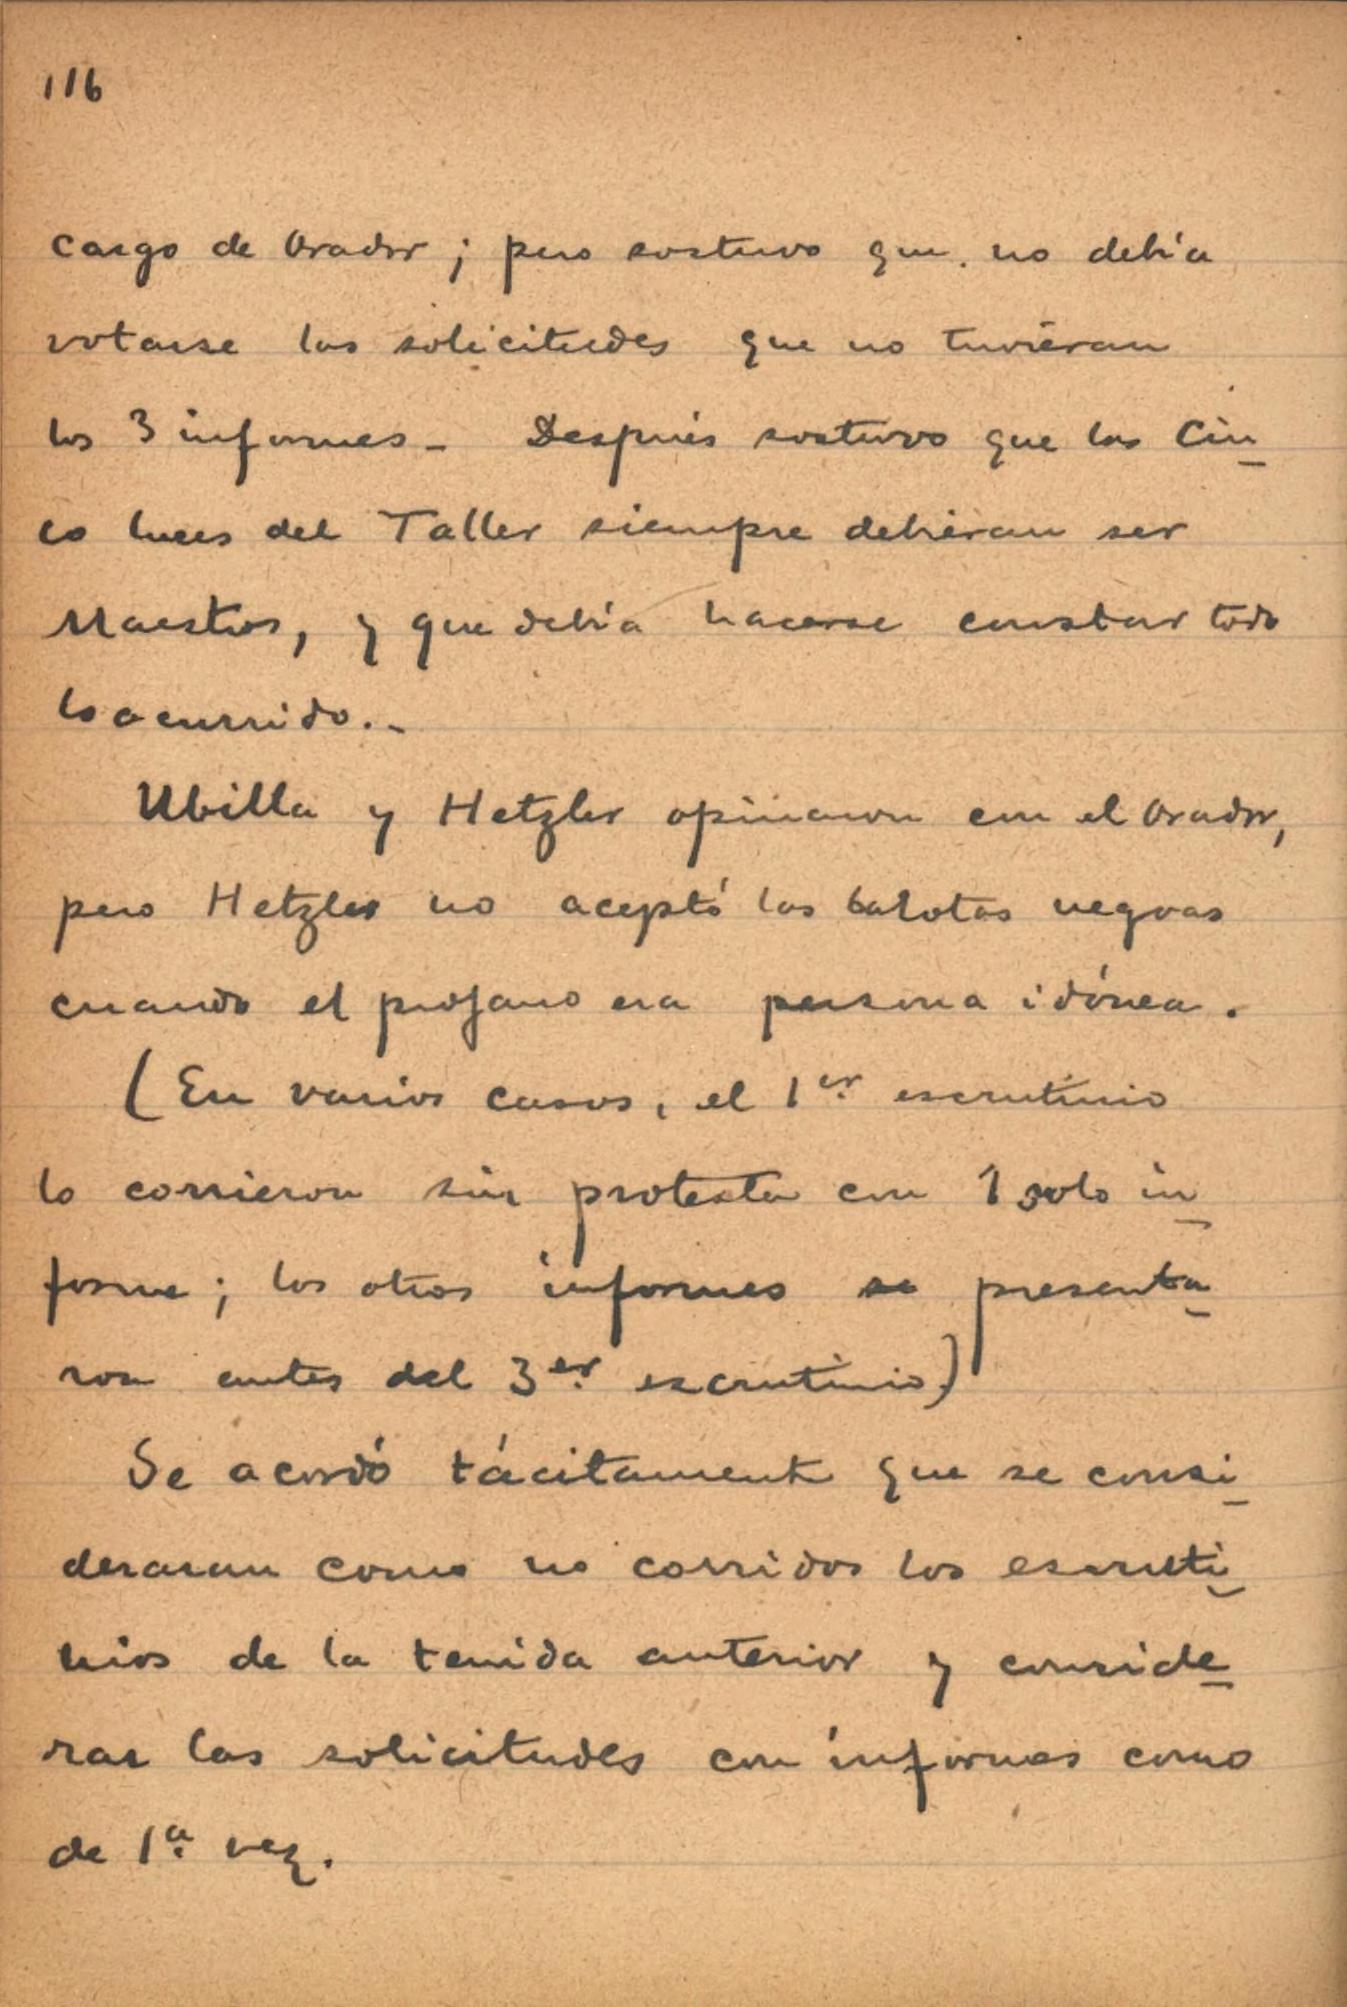 116
cargo de Orador; pero sostuvo que no debía
votarse las solicitudes que no tuvieran
los 3 informes_ Después sostuvo que las Cin_
co luces del Taller siempre debieran ser
Maestros, y que debía hacerse constar todo
lo ocurrido._
Ubilla y Hetzler opinaron con el Orador,
pero Hetzler no aceptó las balotas negras
cuando el profano era persona idónea.
(En varios casos, el 1er. escrutinio
lo corrieron sin protesta con 1 solo in_
forme; los otros informes se presenta_
ron antes del 3er. escrutinio.)
Se acordó tácitamente que se consi_
deraran como no corridos los escruti_
nios de la tenida anterior y conside_
rar las solicitudes con informes como
de 1.ª vez.